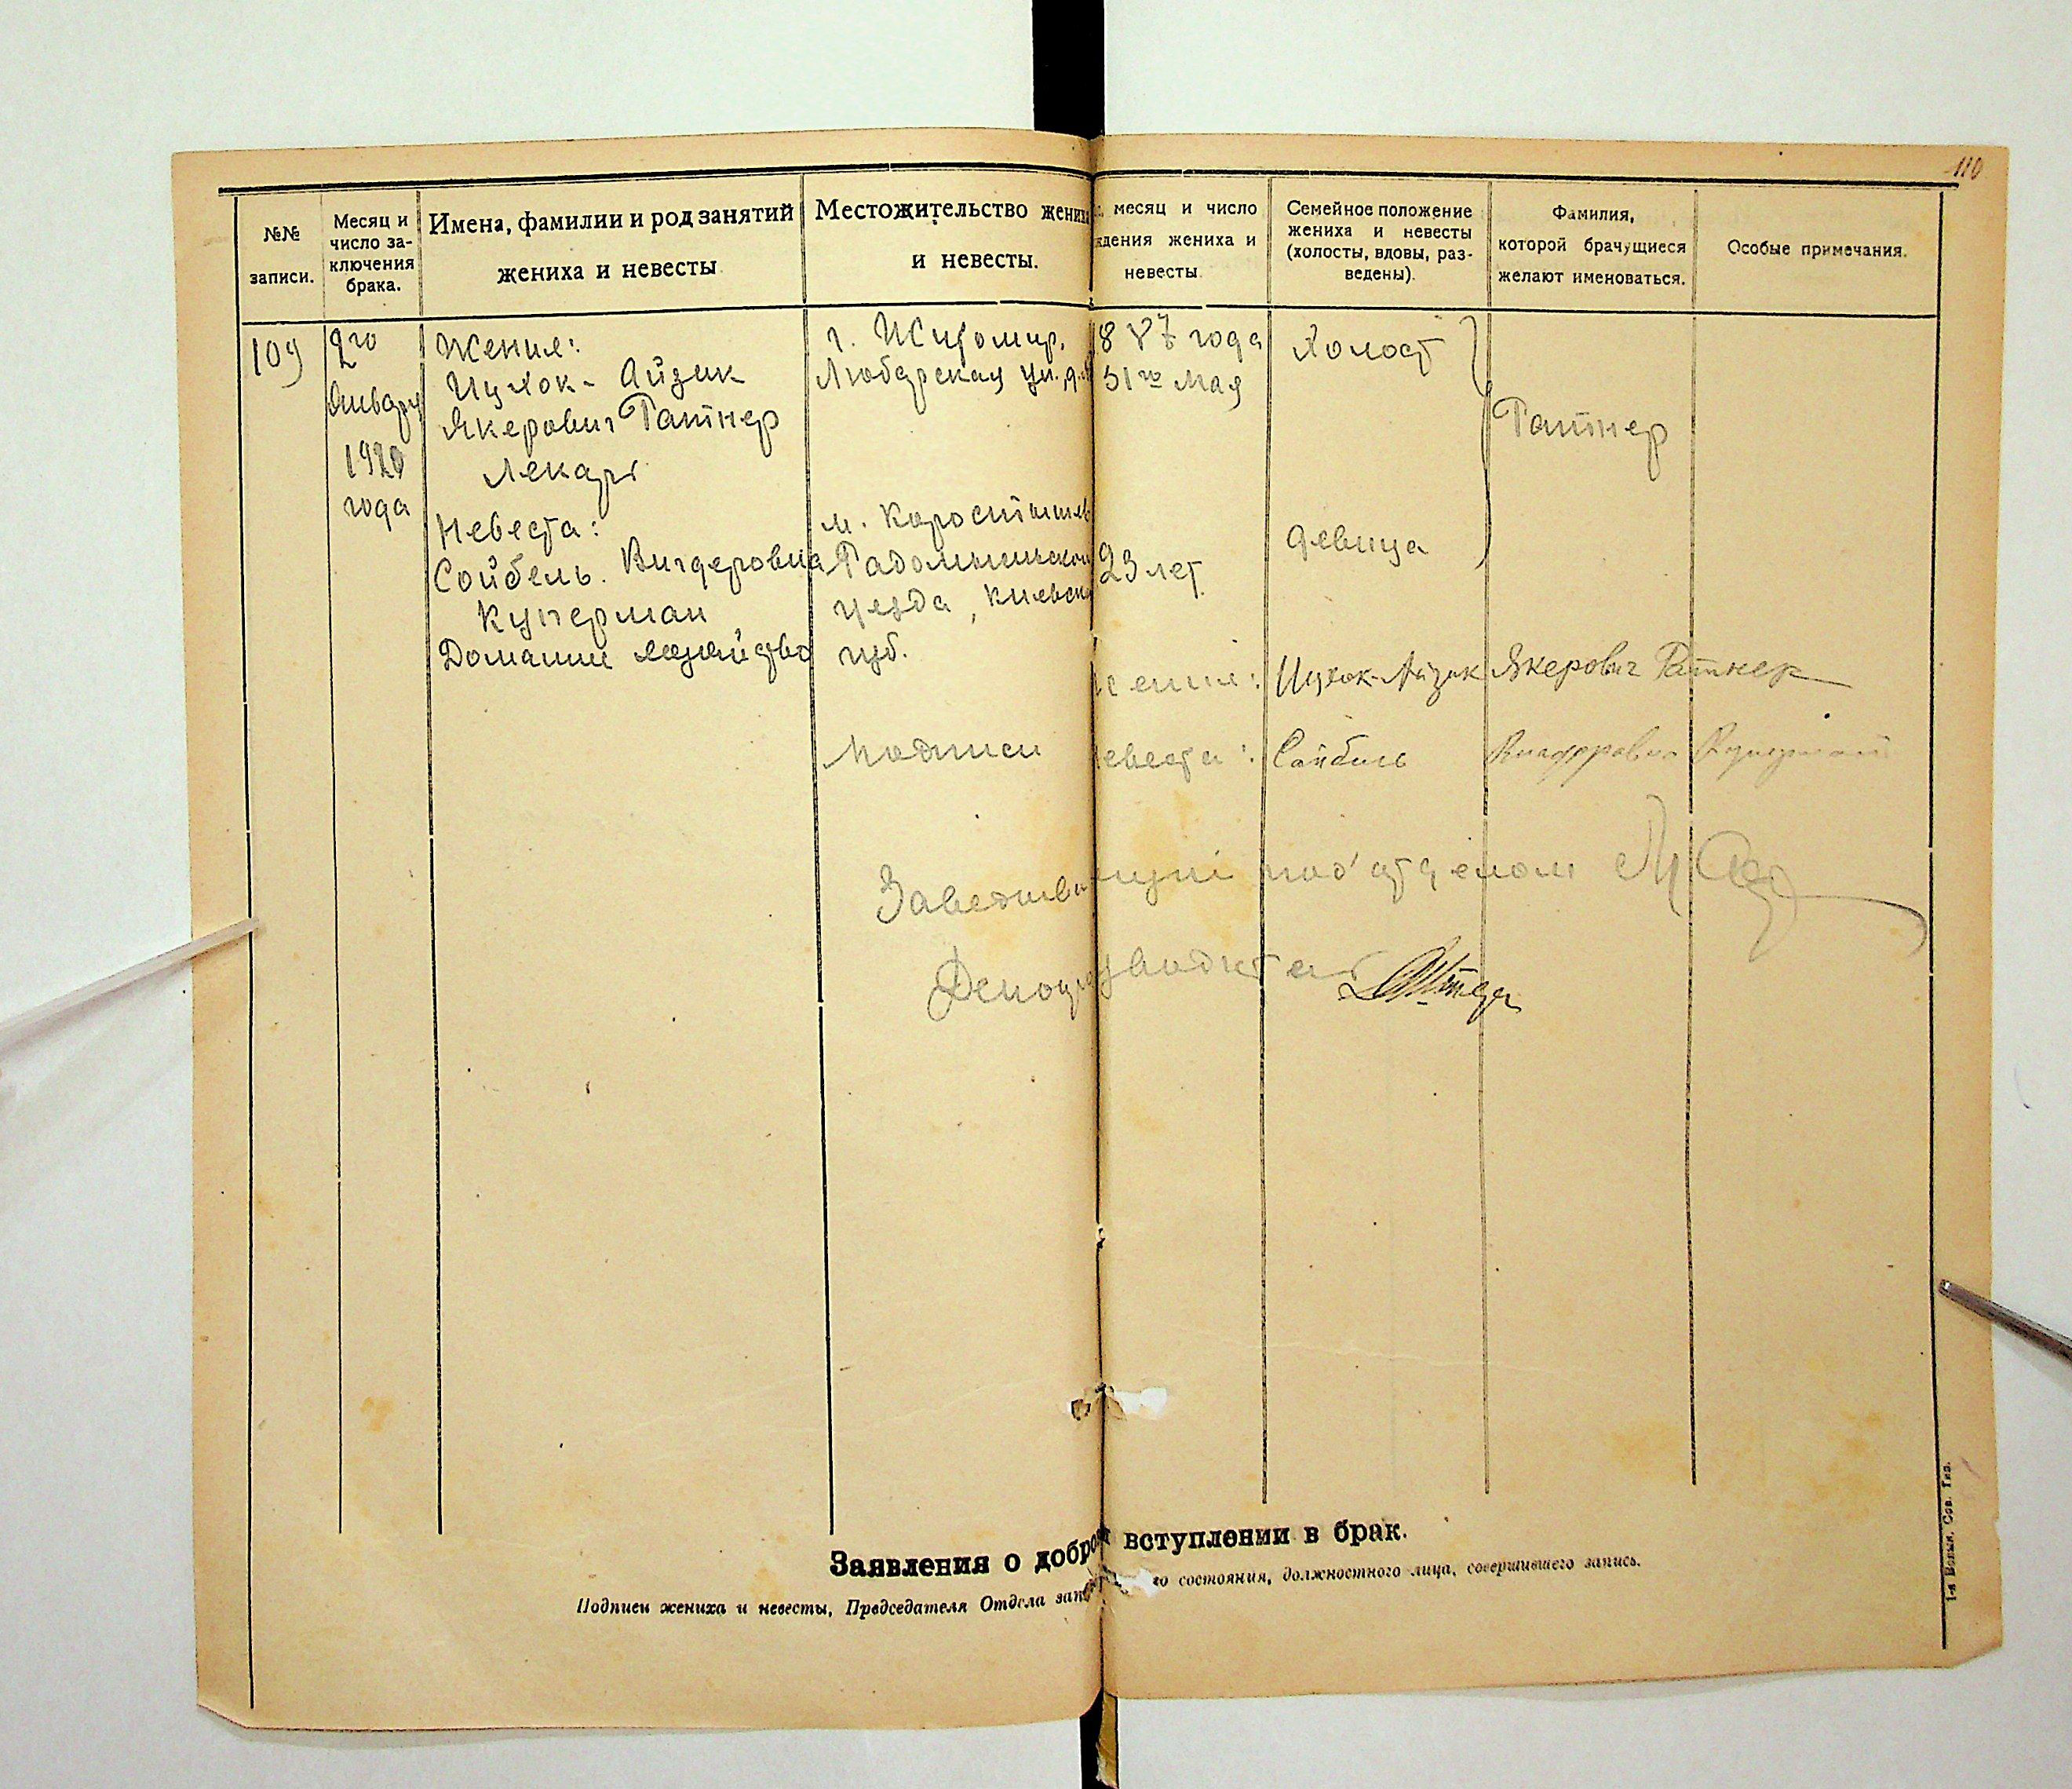 110
№№ записи.
Месяц и число за-
ключения брака.
Имена, фамилии и род занятий
жениха и невесты
Местожительство жениха
и невесты.
месяц и число
ждения жениха и
невесты.
Семейное положение
жениха и невесты
(холосты, вдовы, раз-
ведены).
Фамилия,
которой брачущиеся
желают именоваться.
Особые примечания.
109
2го
Января
1920
года
Жених:
Ицхок-Айзик
Якерович Ратнер
Лекарь
г. Житомир,
Любарская ул.,
887 года
31го Мая
Холост
Ратнер
Невеста:
Сойбель Вигдеровна
Куперман
Домашн хозяйство
м. Коростышев
Радомышльскаго
уезда, Киевской
губ.
23 лет
девица
Подписи
жених: Ицхок-Айзик Якерович Ратнер
невеста: Сойбель Вигдеровна Куперман
Заведывающий под'отделом
Делопроизводитель
Заявления о добро вступлении в брак.
Подписи жениха и невесты, Председателя Отдела зап го состояния, должностного лица, совершившего запись.
1-я Тип.